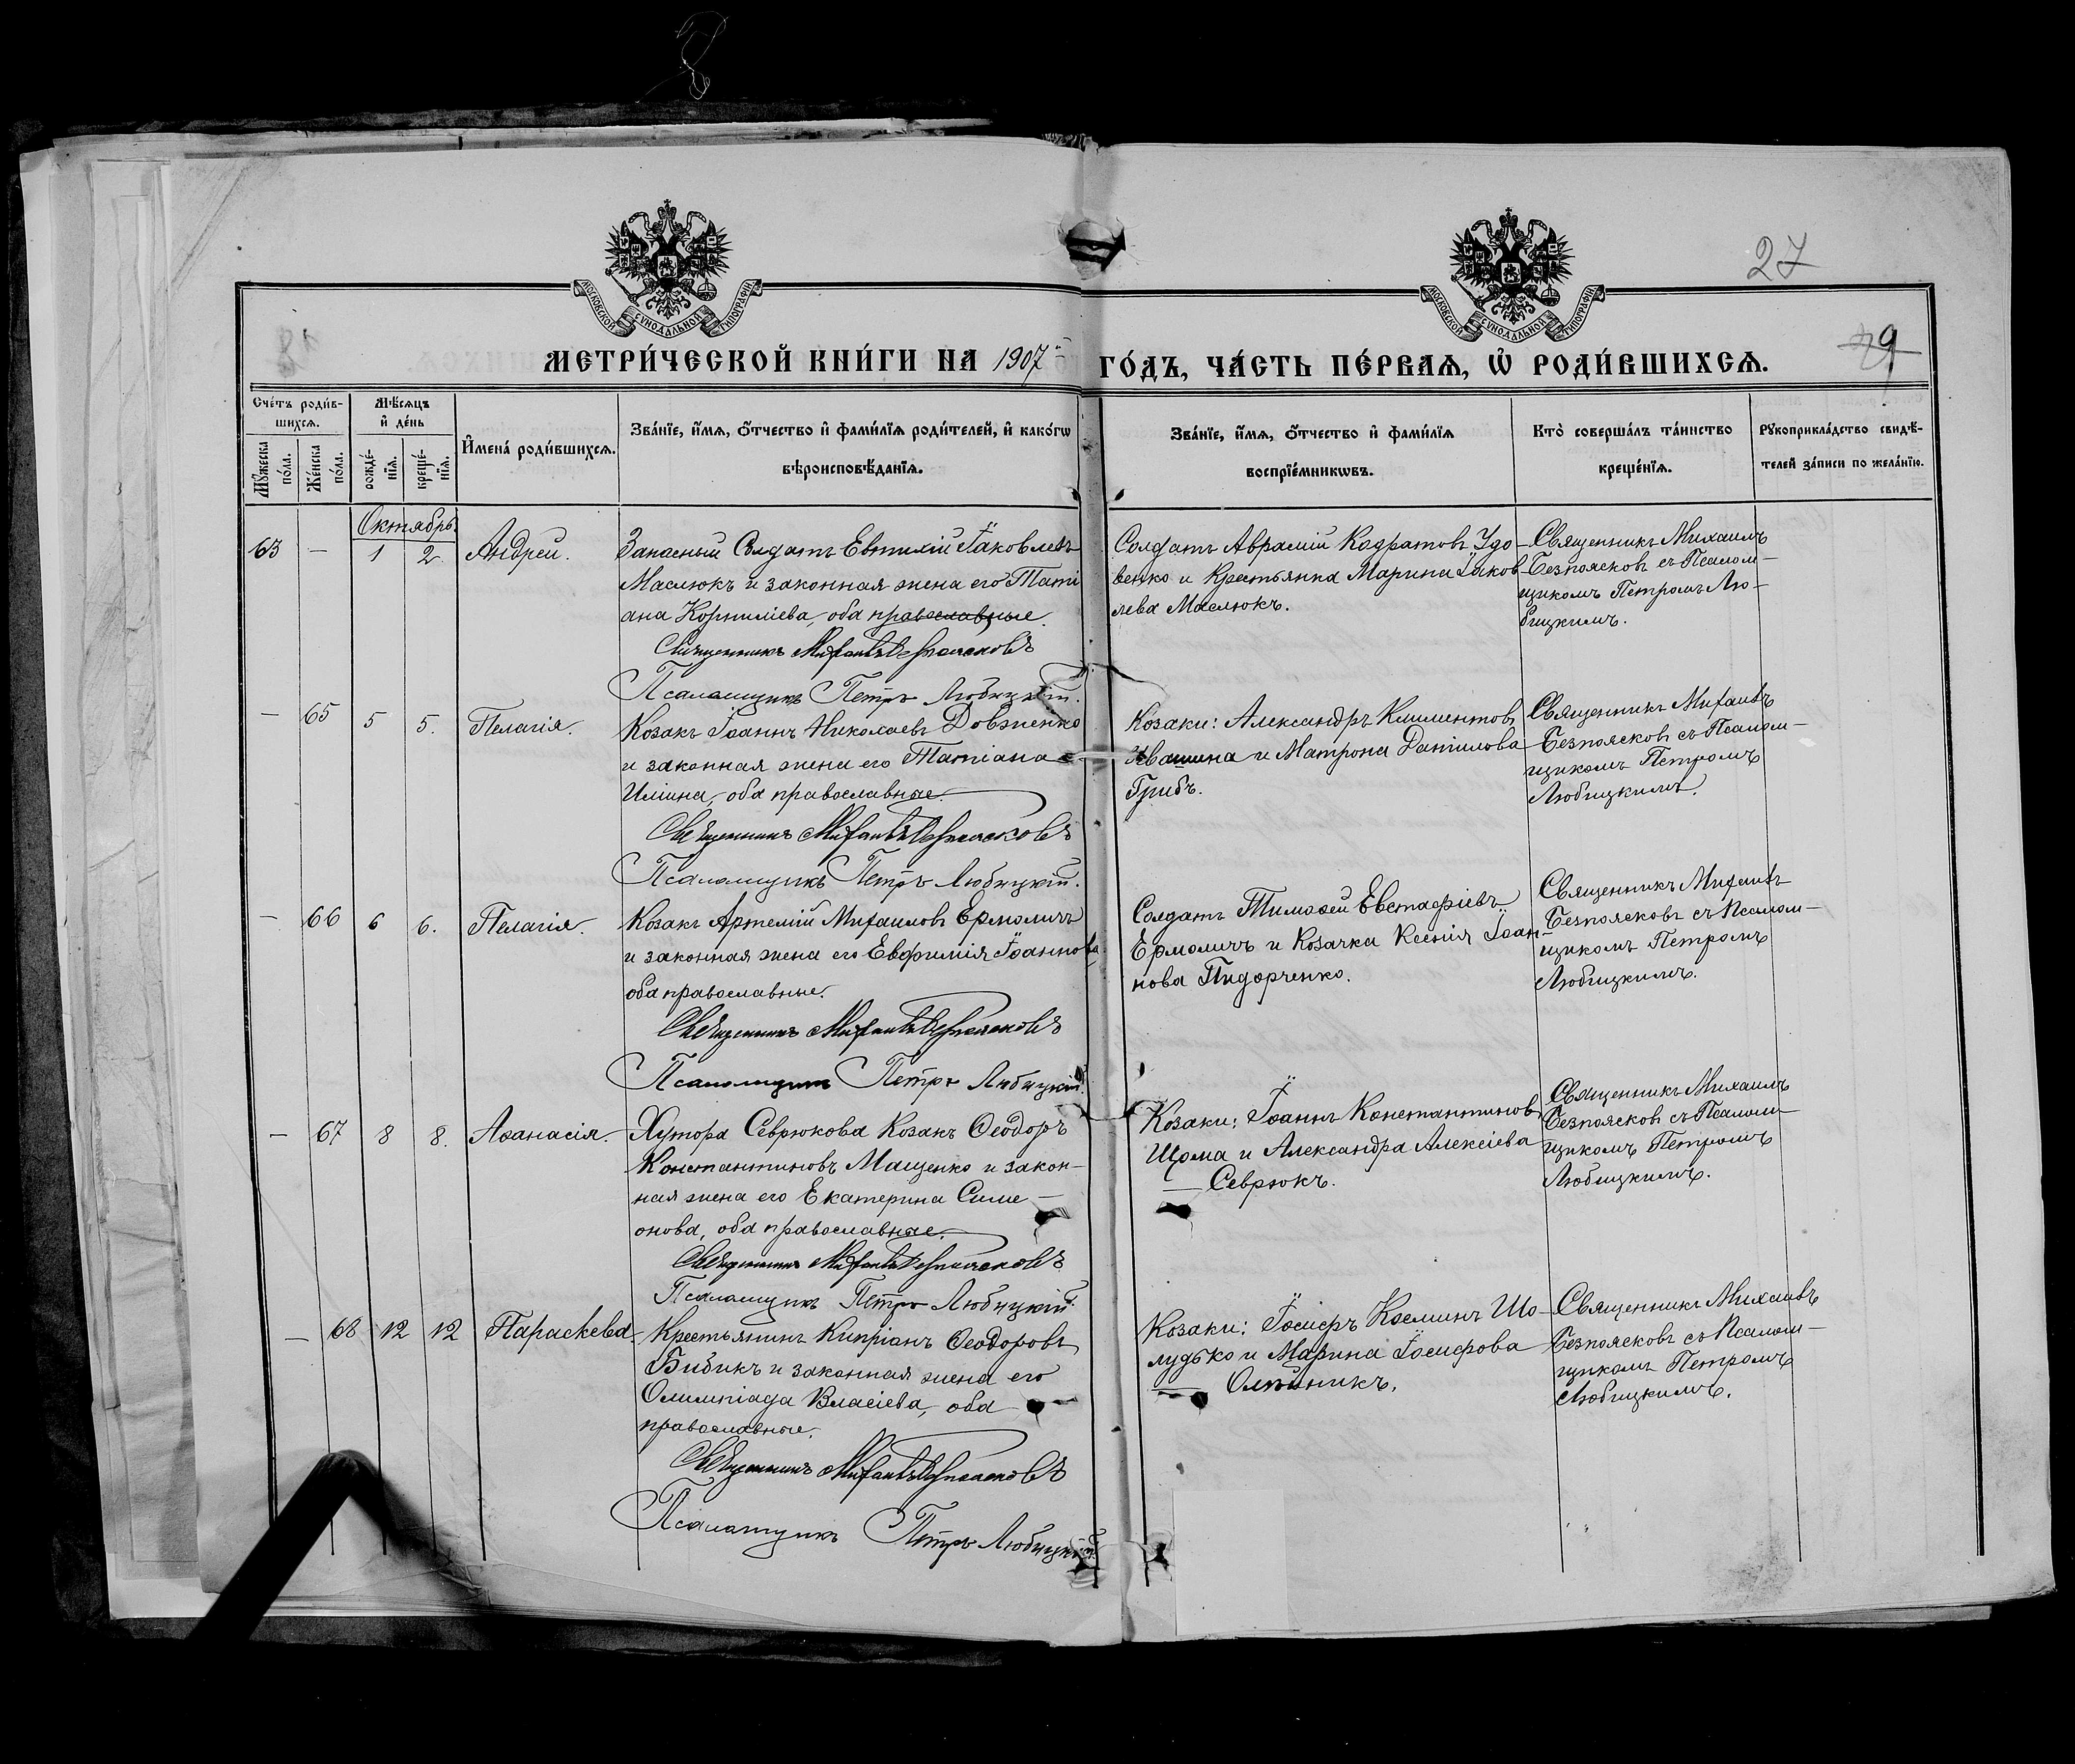 27
29
МОСКОВСКОЙ СѴНОДАЛЬНОЙ ТИПОГРАФІИ
МОСКОВСКОЙ СѴНОДАЛЬНОЙ ТИПОГРАФІИ
МЕТРИ́ЧЕСКОЙ КНИ́ГИ НА 1907 ГО́ДЪ, ЧА́СТЬ ПЕ́РВАѦ, Ѡ҆ РОДИ́ВШИХСѦ.
Сче́тъ роди́в-
шихсѧ.
Мꙋ́жеска по́ла.
Же́нска по́ла.
Мѣ́сѧцъ
и҆ де́нь
рожде́-
нїѧ.
креще́-
нїѧ.
И҆мена̀ роди́вшихсѧ.
Зва́нїе, и҆́мѧ, ѻ҆́тчество и҆ фами́лїѧ роди́телей, и҆ како́гѡ
вѣроисповѣ́данїѧ.
Зва́нїе, и҆́мѧ, ѻ҆́тчество и҆ фами́лїѧ
воспрїе́мникѡвъ.
Кто̀ соверша́лъ та́инство
креще́нїѧ.
Рꙋкоприкла́дство свидѣ́-
телей за́писи по жела́нїю.
Октябрь
63 — 1 2 Андрей.
Запасный Солдатъ Евтихій Іаковлевъ
Маслюкъ и законная жена его Тати
ана Корниліева, оба православные.
Священникъ Михаилъ Безпоясковъ
Псаломщикъ Петръ Любицкій.
Солдатъ Аврамій Кодратовъ Удо-
венко и Крестьянка Марина Іаков-
лева Маслюкъ.
Священникъ Михаилъ
Безпоясковъ съ Псалом-
щикомъ Петромъ Лю-
бицкимъ.
— 65 5 5. Пелагія.
Козакъ Іоаннъ Николаевъ Довженко
и законная жена его Татіана
Иліина, оба православные.
Священникъ Михаилъ Безпоясковъ
Псаломщикъ Петръ Любицкій.
Козаки: Александръ Климентовъ
Ивашина и Матрона Даніилова
Грибъ.
Священникъ Михаилъ
Безпоясковъ съ Псалом-
щикомъ Петромъ
Любицкимъ.
— 66 6 6. Пелагія.
Козакъ Артемій Михаиловъ Ермоличъ
и законная жена его Евфимія Іоаннова,
оба православные.
Священникъ Михаилъ Безпоясковъ
Псаломщикъ Петръ Любицкій.
Солдатъ Тимоѳей Евстафіевъ
Ермоличъ и Козачка Ксенія Іоан-
нова Пидорченко.
Священникъ Михаилъ
Безпоясковъ съ Псалом-
щикомъ Петромъ
Любицкимъ.
— 67 8 8. Аѳанасія.
Хутора Севрюкова Козакъ Ѳеодоръ
Константиновъ Мащенко и закон-
ная жена его Екатерина Симе-
онова, оба православные.
Священникъ Михаилъ Безпоясковъ
Псаломщикъ Петръ Любицкій.
Козаки: Іоаннъ Константиновъ
Щома и Александра Алексіева
— Севрюкъ.
Священникъ Михаилъ
Безпоясковъ съ Псалом-
щикомъ Петромъ
Любицкимъ.
— 68 12 12 Параскева
Крестьянинъ Кипріанъ Ѳеодоровъ
Бибикъ и законная жена его
Олимпіада Власіева, оба —
православные.
Священникъ Михаилъ Безпоясковъ
Псаломщикъ Петръ Любицкій.
Козаки: Іосифъ Косминъ Шо-
лудько и Марина Іосифова
— Олейникъ.
Священникъ Михаилъ
Безпоясковъ съ Псалом-
щикомъ Петромъ
Любицкимъ.